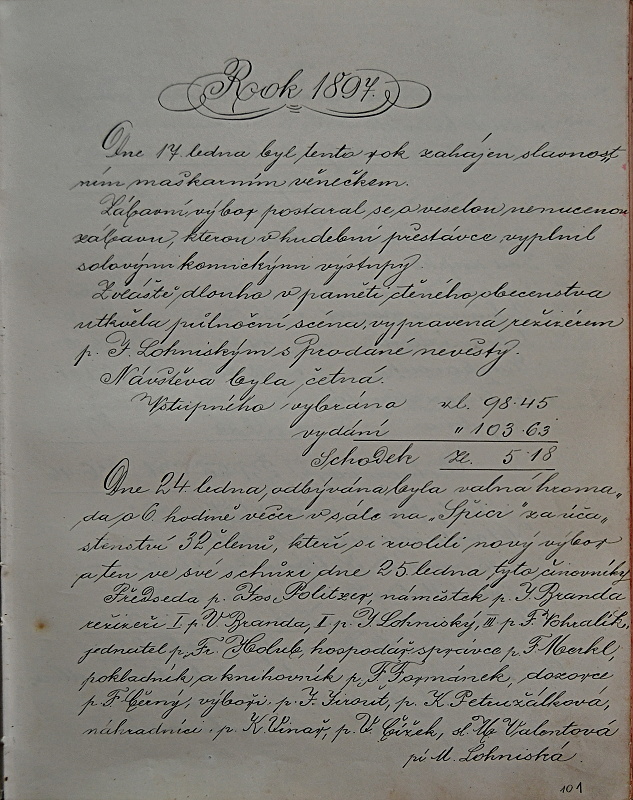 Rok 1897.
Dne 17. ledna byl tento rok zahájen slavnost
ním maškarním věnečkem.
Zábavní výbor postaral se o veselou, nenucenou
zábavu, kterou v hudební přestávce vyplnil
solovými komickými výstupy.
Zvláště dlouho v paměti ctěného obecenstva
utkvěla půlnoční scéna, vypravená režisérem
p. F. Lohniským s Prodané nevěsty.
Návštěva byla četná.
Vstupného vybrána zl. 98·45
vydání " 103·63
Schodek zl. 5·18
Dne 24. ledna, odbývána byla valná hroma„
da o 6. hodině večer v sále na „Špici" za úča„
stenství 32 členů, kteří si zvolili nový výbor
a ten ve své schůzi dne 25. ledna tyto činovníky
Předseda p. Jos. Politzer, náměstek p. J. Branda
režiséři I p. V. Branda, II p. J. Lohniský, III p. F. Vohralík,
jednatel p. Fr. Holub, hospodář. správce p. F. Merkl,
pokladník a knihovník p. F. Formánek, dozorce
p. F. Černý, výboři p. J. Jirout, p. K. Petružálková,
náhradníci: p. K. Vinař, p. V. Čížek, sl. M. Valentová
pí M. Lohniská.
101